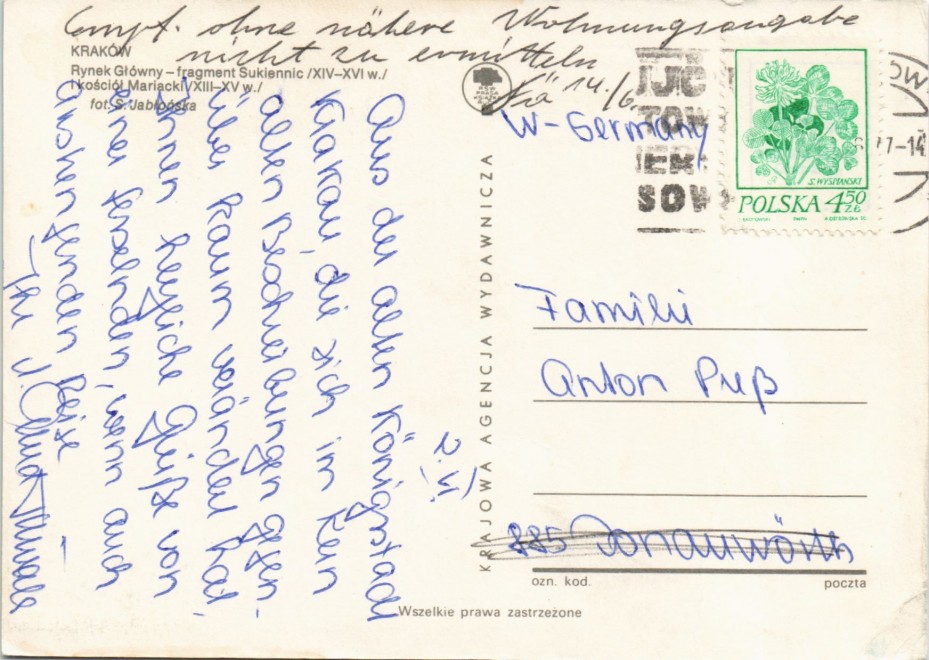 Empf. ohne nähere Wohnungsangabe
nicht zu ermitteln
14./6.
KRAKÓW
Rynek Główny – fragment Sukiennic /XIV–XVI w./
i kościół Mariacki /XIII–XV w./
fot. S. Jabłońska
W-Germany
S. WYSPIAŃSKI
POLSKA 4 50 ZŁ
77-14
SOW
2. VI.
Aus der alten Königsstadt
Krakau, die sich im Kern
alten Beschreibungen gegen-
über kaum verändert hat
Ihnen herzliche Grüße von
einer fesselnden, wenn auch
anstrengenden Reise
Ihr
KRAJOWA AGENCJA WYDAWNICZA
Familie
Anton Preß
885 Donauwörth
ozn. kod. poczta
Wszelkie prawa zastrzeżone